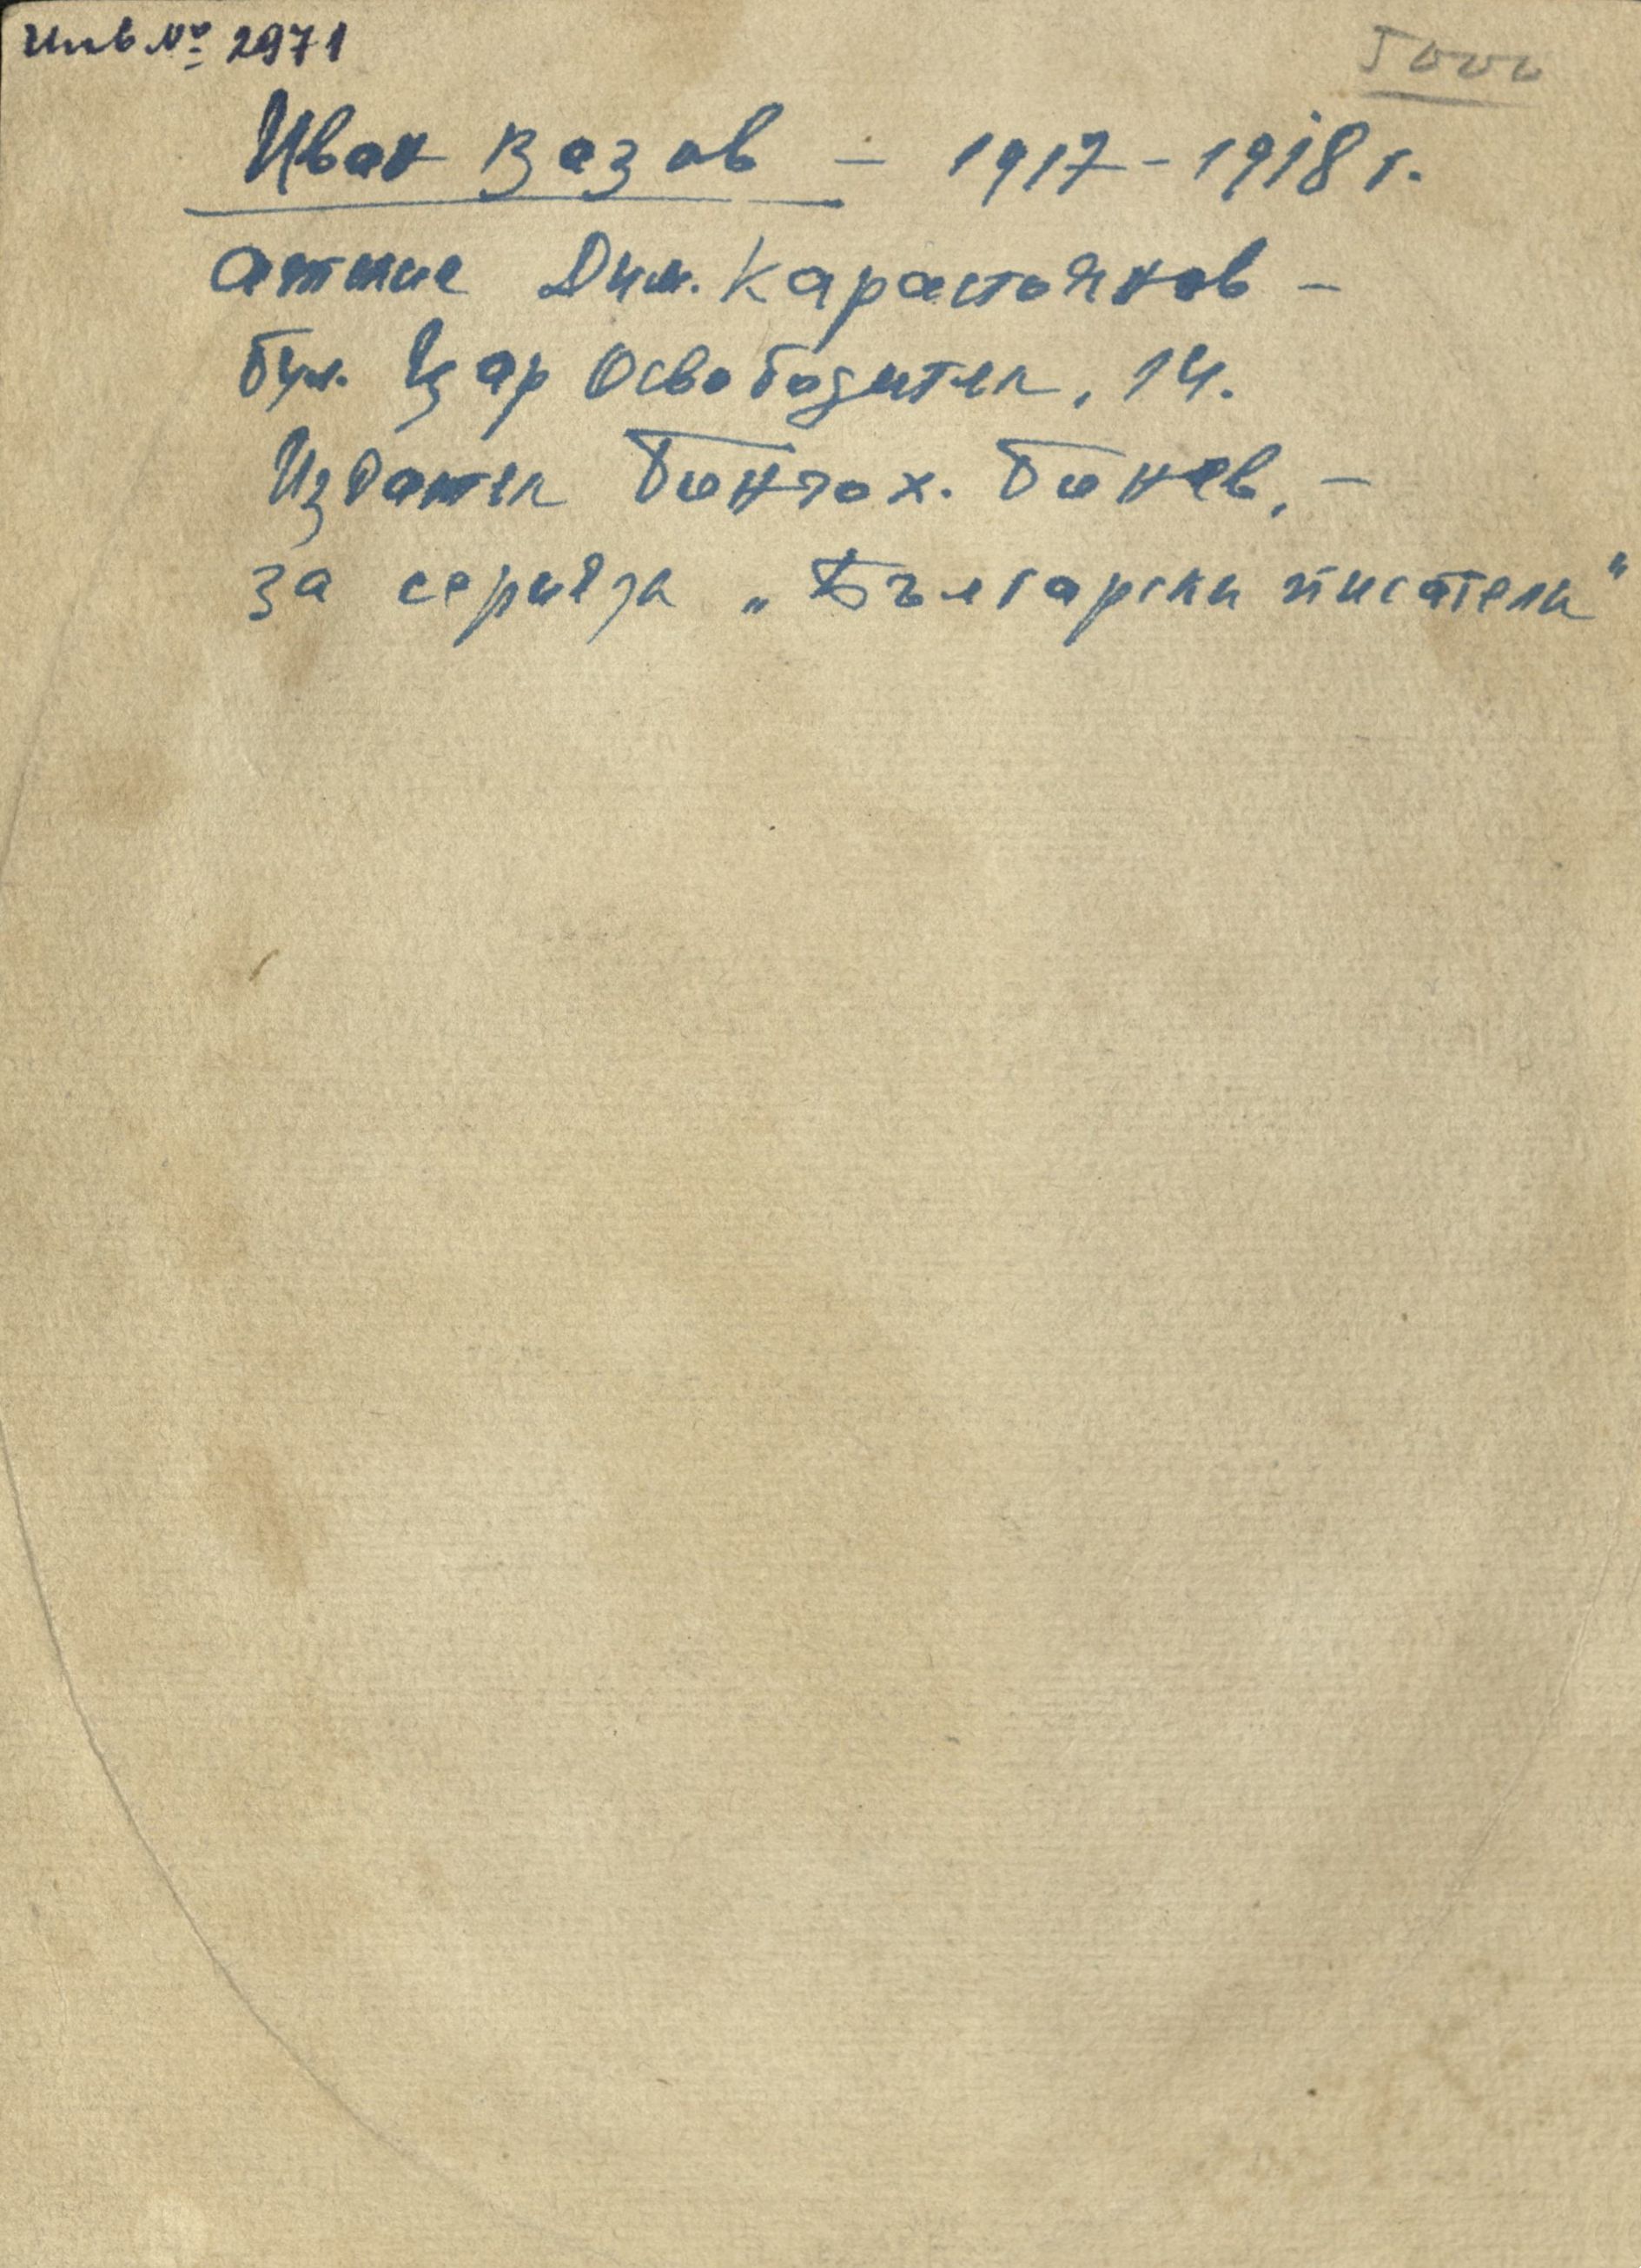 Инв № 2971
5000
Иван Вазов – 1917 – 1918 г.
ателие Дим. Карастоянов –
бул. Цар Освободител, 14.
Издател Бончо х. Бонев, –
за серията „Български писатели"